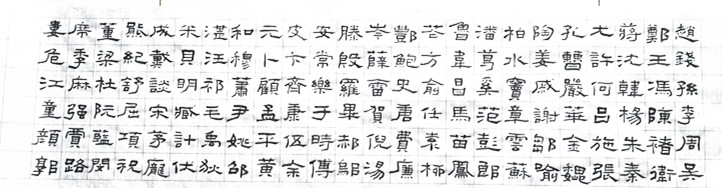 趙錢孫李周吳
鄭王馮陳褚衛
蔣沈韓楊朱秦
尤許何呂施張
孔曹嚴華金魏
陶姜戚謝鄒喻
柏水竇章雲蘇
潘葛奚范彭郎
魯韋昌馬苗鳳
花方俞任袁柳
酆鮑史唐費廉
岑薛雷賀倪湯
滕殷羅畢郝鄔
安常樂于時傅
皮卞齊康伍余
元卜顧孟平黃
和穆蕭尹姚邵
湛汪祁毛禹狄
米貝明臧計伏
成戴談宋茅龐
熊紀舒屈項祝
董梁杜阮藍閔
席季麻强賈路
婁危江童顏郭